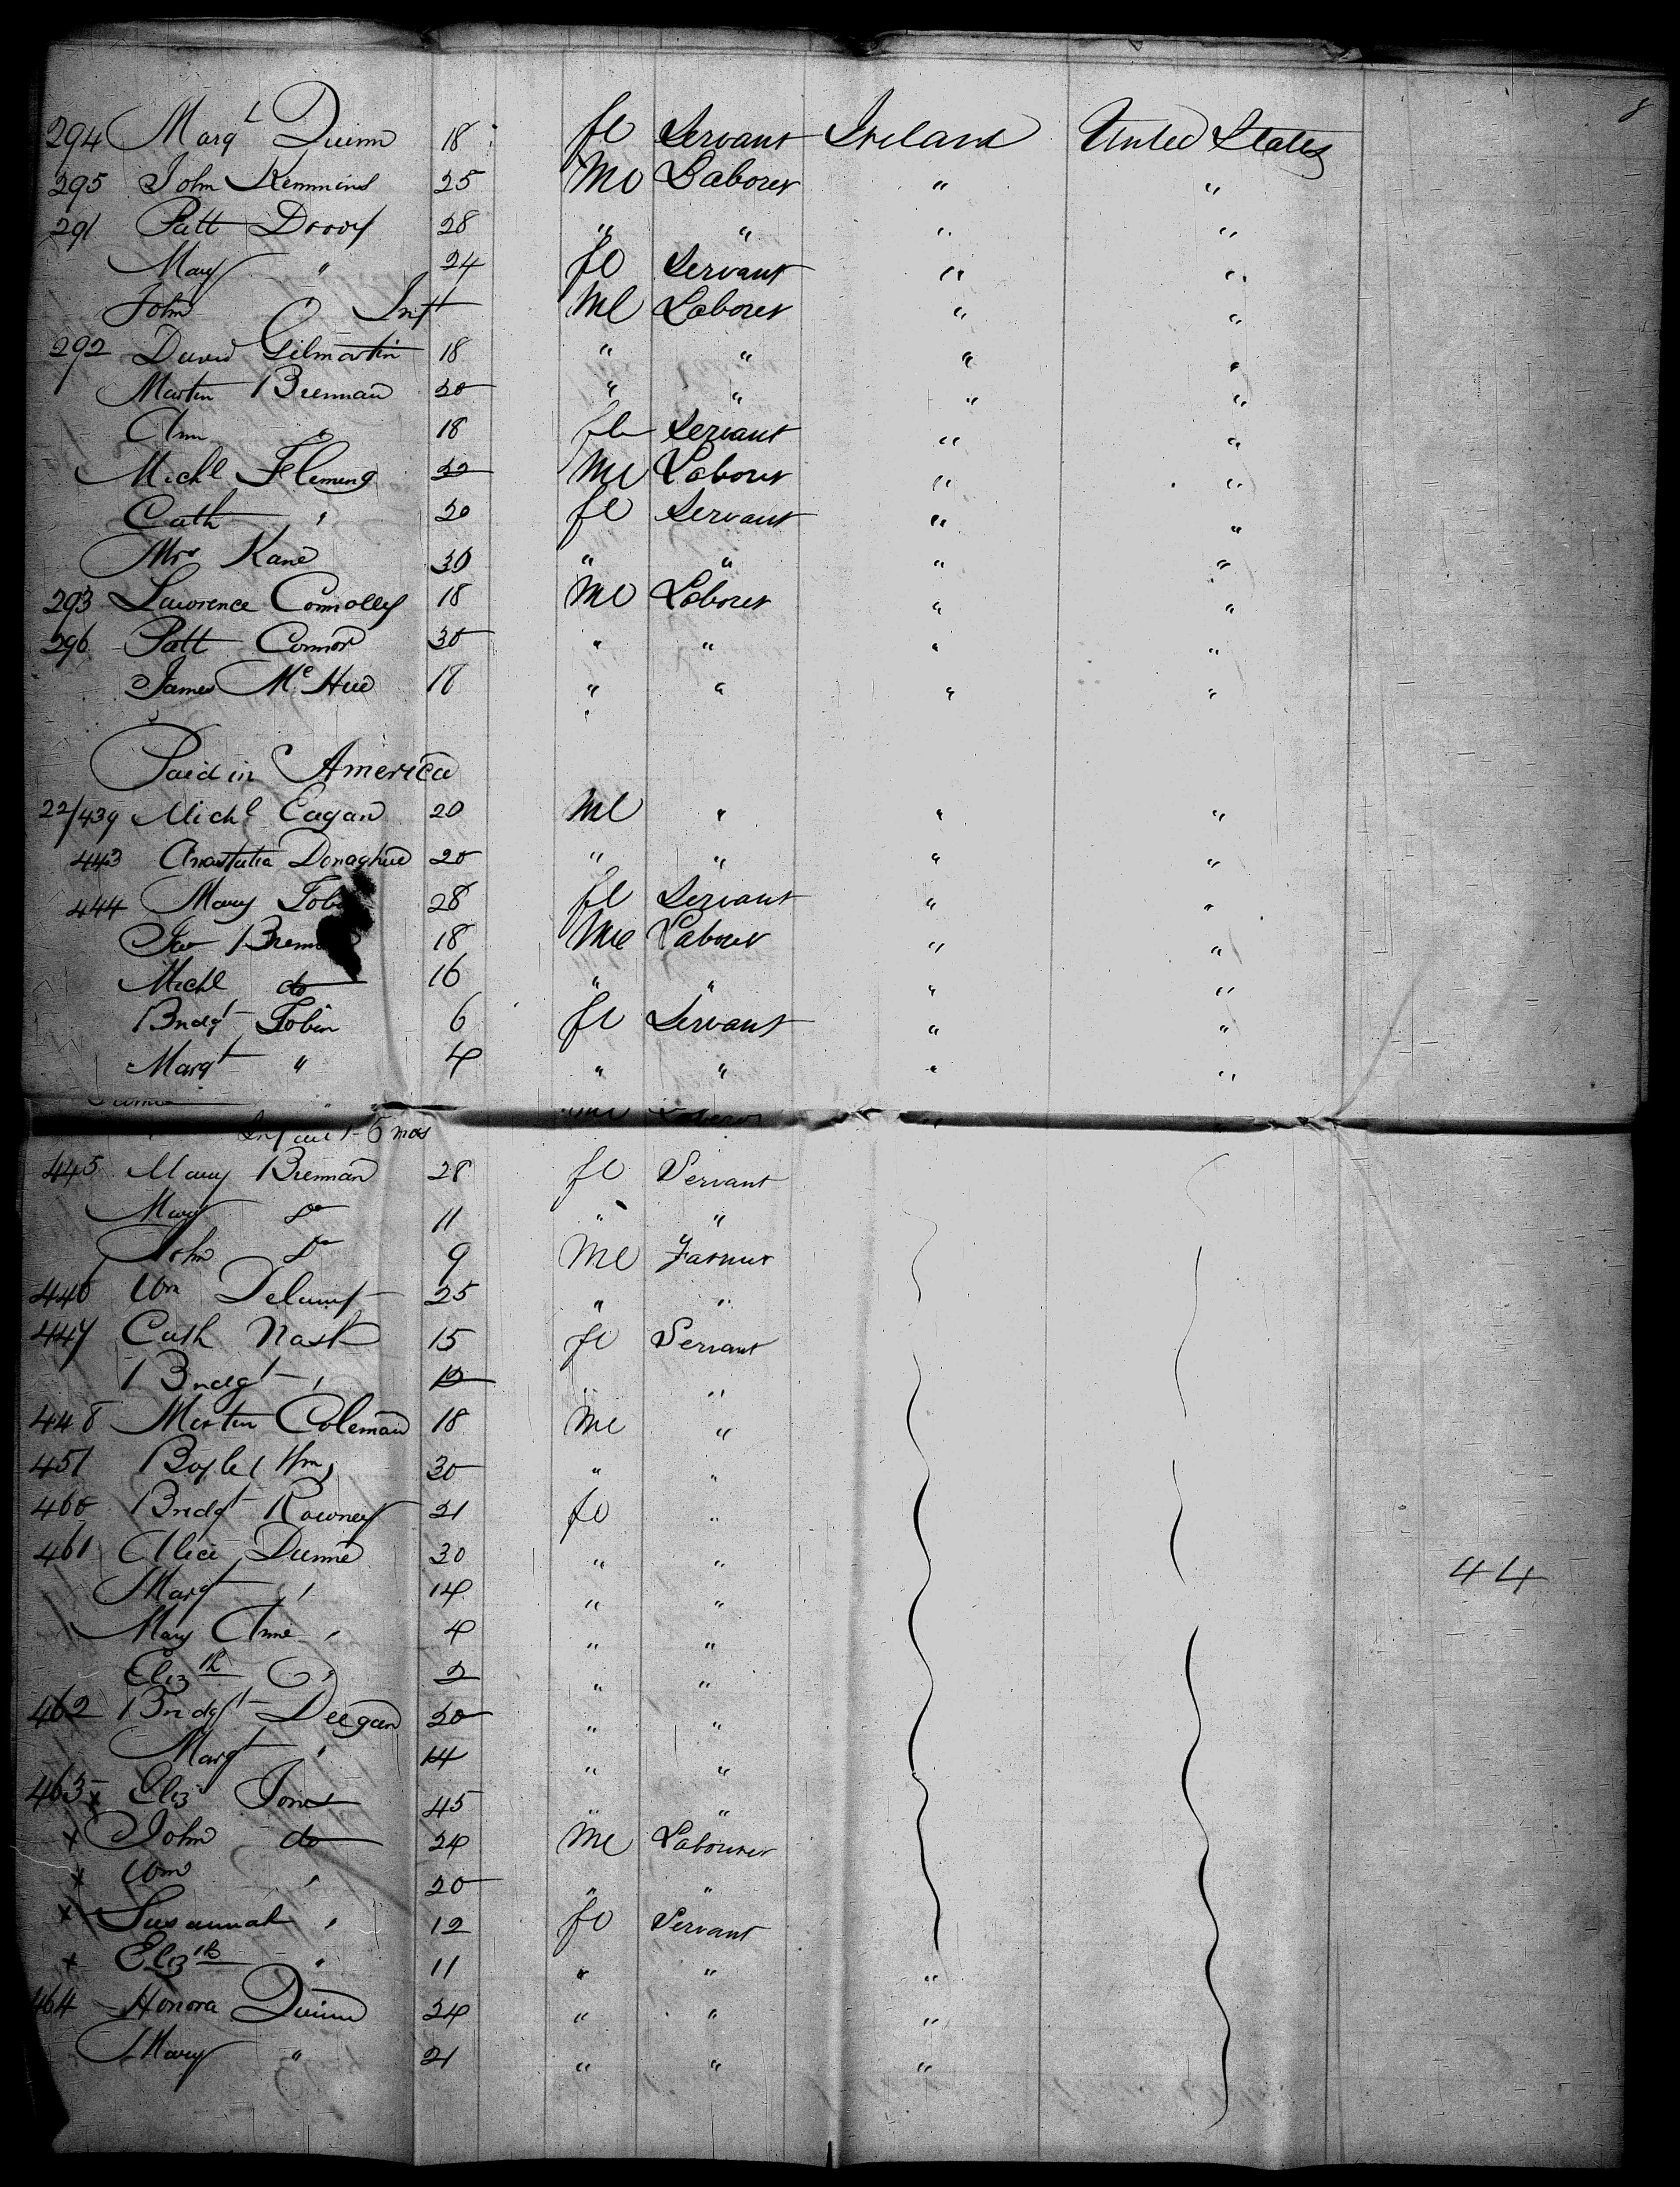 8
294 Margt Quinn 18 fe Servant Ireland United States
295 John Kemmins 25 Me Laborer " "
291 Patt Droof 28 " " " "
Mary " 24 fe Servant " "
John Inft Me Laborer " "
292 David Gilmartin 18 " " " "
Martin Brennan 20 " " " "
Ann " 18 fe Servant " "
Michl Fleming 22 Me Laborer " "
Cath " 20 fe Servant " "
Mrs Kane 30 " " " "
293 Lawrence Connolly 18 Me Laborer " "
296 Patt Connor 30 " " " "
James McHue 18 " " " "
Paid in America
22/439 Michl Eagan 20 Me " " "
443 Anastatia Donaghue 20 " " " "
444 Mary Tobi 28 fe Servant " "
Bren 18 Me Laborer " "
Michl do 16 " " " "
Bridgt Tobin 6 fe Servant " "
Margt " 4 " " " "
" Me Laborer "
Infant 6 mos
445 Mary Brennan 28 fe Servant
Mary Do 11 " "
John Do 9 Me Farmer
446 Wm 25 " "
447 Cath Nash 15 fe Servant
Bridgt " 12 " "
448 Martin Coleman 18 Me "
451 Boyle Wm 30 " "
460 Bridgt Rowney 21 fe "
461 Alice Dunne 30 " "
44
Margt " 14 " "
Mary Anne " 4 " "
Elizth " 2 " "
462 Bridgt Deegan 20 " "
Margt " 14 " "
463 x Eliz Jones 45 " "
x John do 24 Me Labourer
x Wm " 20 " "
x Susannah " 12 fe Servant
x Elizth " 11 " " "
464 Honora Quinn 24 " " "
Mary " 21 " " "